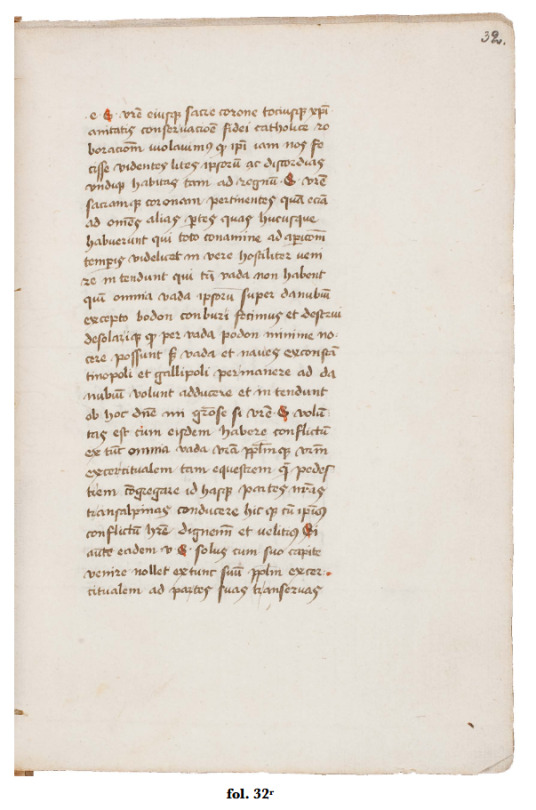 32.
e S. vrẽ eiusqȝ sacre corone tociusqȝ xp̃i
anitatis conservacioẽ fidei catholice ro
boraciõm violavimus qȝ ip̃i iam nos fe
cisse videntes lites ipsorũ ac discordias
vndiqȝ habitas tam ad regnũ S. vrẽ
sacramqȝ coronam pertinentes quã eciã
ad omẽs alias p̱tes quas hucusque
habuerunt qui toto conamine ad ap̱icõm
temp̱is videlicet in vere hostiliter veni
re intendunt qui tñ vada non habent
quĩ omnia vada ipsorũ super danubiũ
excepto bodon conburi fecimus et destrui
desolariqȝ qȝ per vada podon minime no
cere possunt sȝ vada et naves exconstã
tinopoli et gallipoli permanere ad da
nubiũ volunt adducere et intendunt
ob hoc dñe mi grõse si vrẽ S volũ
tas est cum eisdem habere conflictũ
ex tũc omnia vada vrã pp̃lmqȝ vrm̃
excercitualem tam equestrem qȝ pedes
trem cõgregare id hasqȝ partes nrãs
transalpinas conducere hic qȝ cũ ip̃ius
conflictũ hrẽ dignem̃ et velitis Si
autẽ eadem v S. solus cum suo capite
venire nollet extunc suũ pp̃lm excer
citualem ad partes suas transervas
fol. 32ʳ